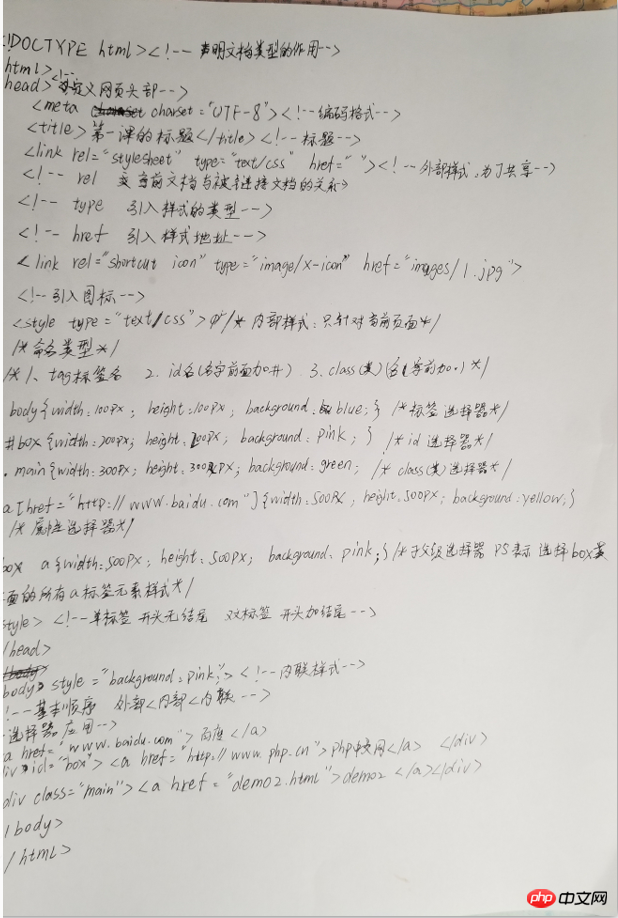 !DOCTYPE html><!-- 声明文档类型的作用-->
html>
head><!--定义网页头部-->
<meta charset="UTF-8"><!--编码格式-->
<title>第一课的标题</title><!--标题-->
<link rel="stylesheet" type="text/css" href=" "><!--外部样式,为了共享-->
<!-- rel 当前文档与被连接文档的关系>
<!-- type 引入样式的类型-->
<!-- href 引入样式地址-->
<link rel="shortcut icon" type="image/x-icon" href="images/1.jpg">
<!--引入图标-->
<style type="text/css"> /* 内部样式:只针对当前页面*/
/*命名类型*/
/*1、tag标签名 2. id名(名字前面加#) 3. class(类)(名字前加.) */
body{width:100px; height:100px; background: blue;} /*标签选择器*/
#box{width:200px; height:200px; background: pink; } /*id选择器*/
.main{width:300px; height:300px; background:green; /* class(类)选择器*/
a[href="http://www.baidu.com"]{width:500px; height:500px; background:yellow;}
/*属性选择器*/
box a{width:500px; height:500px; background: pink;} /*子父级选择器 PS表示 选择box里
面的所有a标签元素样式*/
style> <!--单标签 开头无结尾 双标签 开头加结尾-->
/head>
body style="background:pink;"> <!--内联样式-->
!--基本顺序 外部<内部<内联 -->
-选择器应用-->
a href="www.baidu.com"> 百度 </a>
iv id="box"><a href="http://www.php.cn">php中文网</a> </div>
div class="main"><a href="demo2.html">demo2 </a></div>
/body>
/html>
php中文网